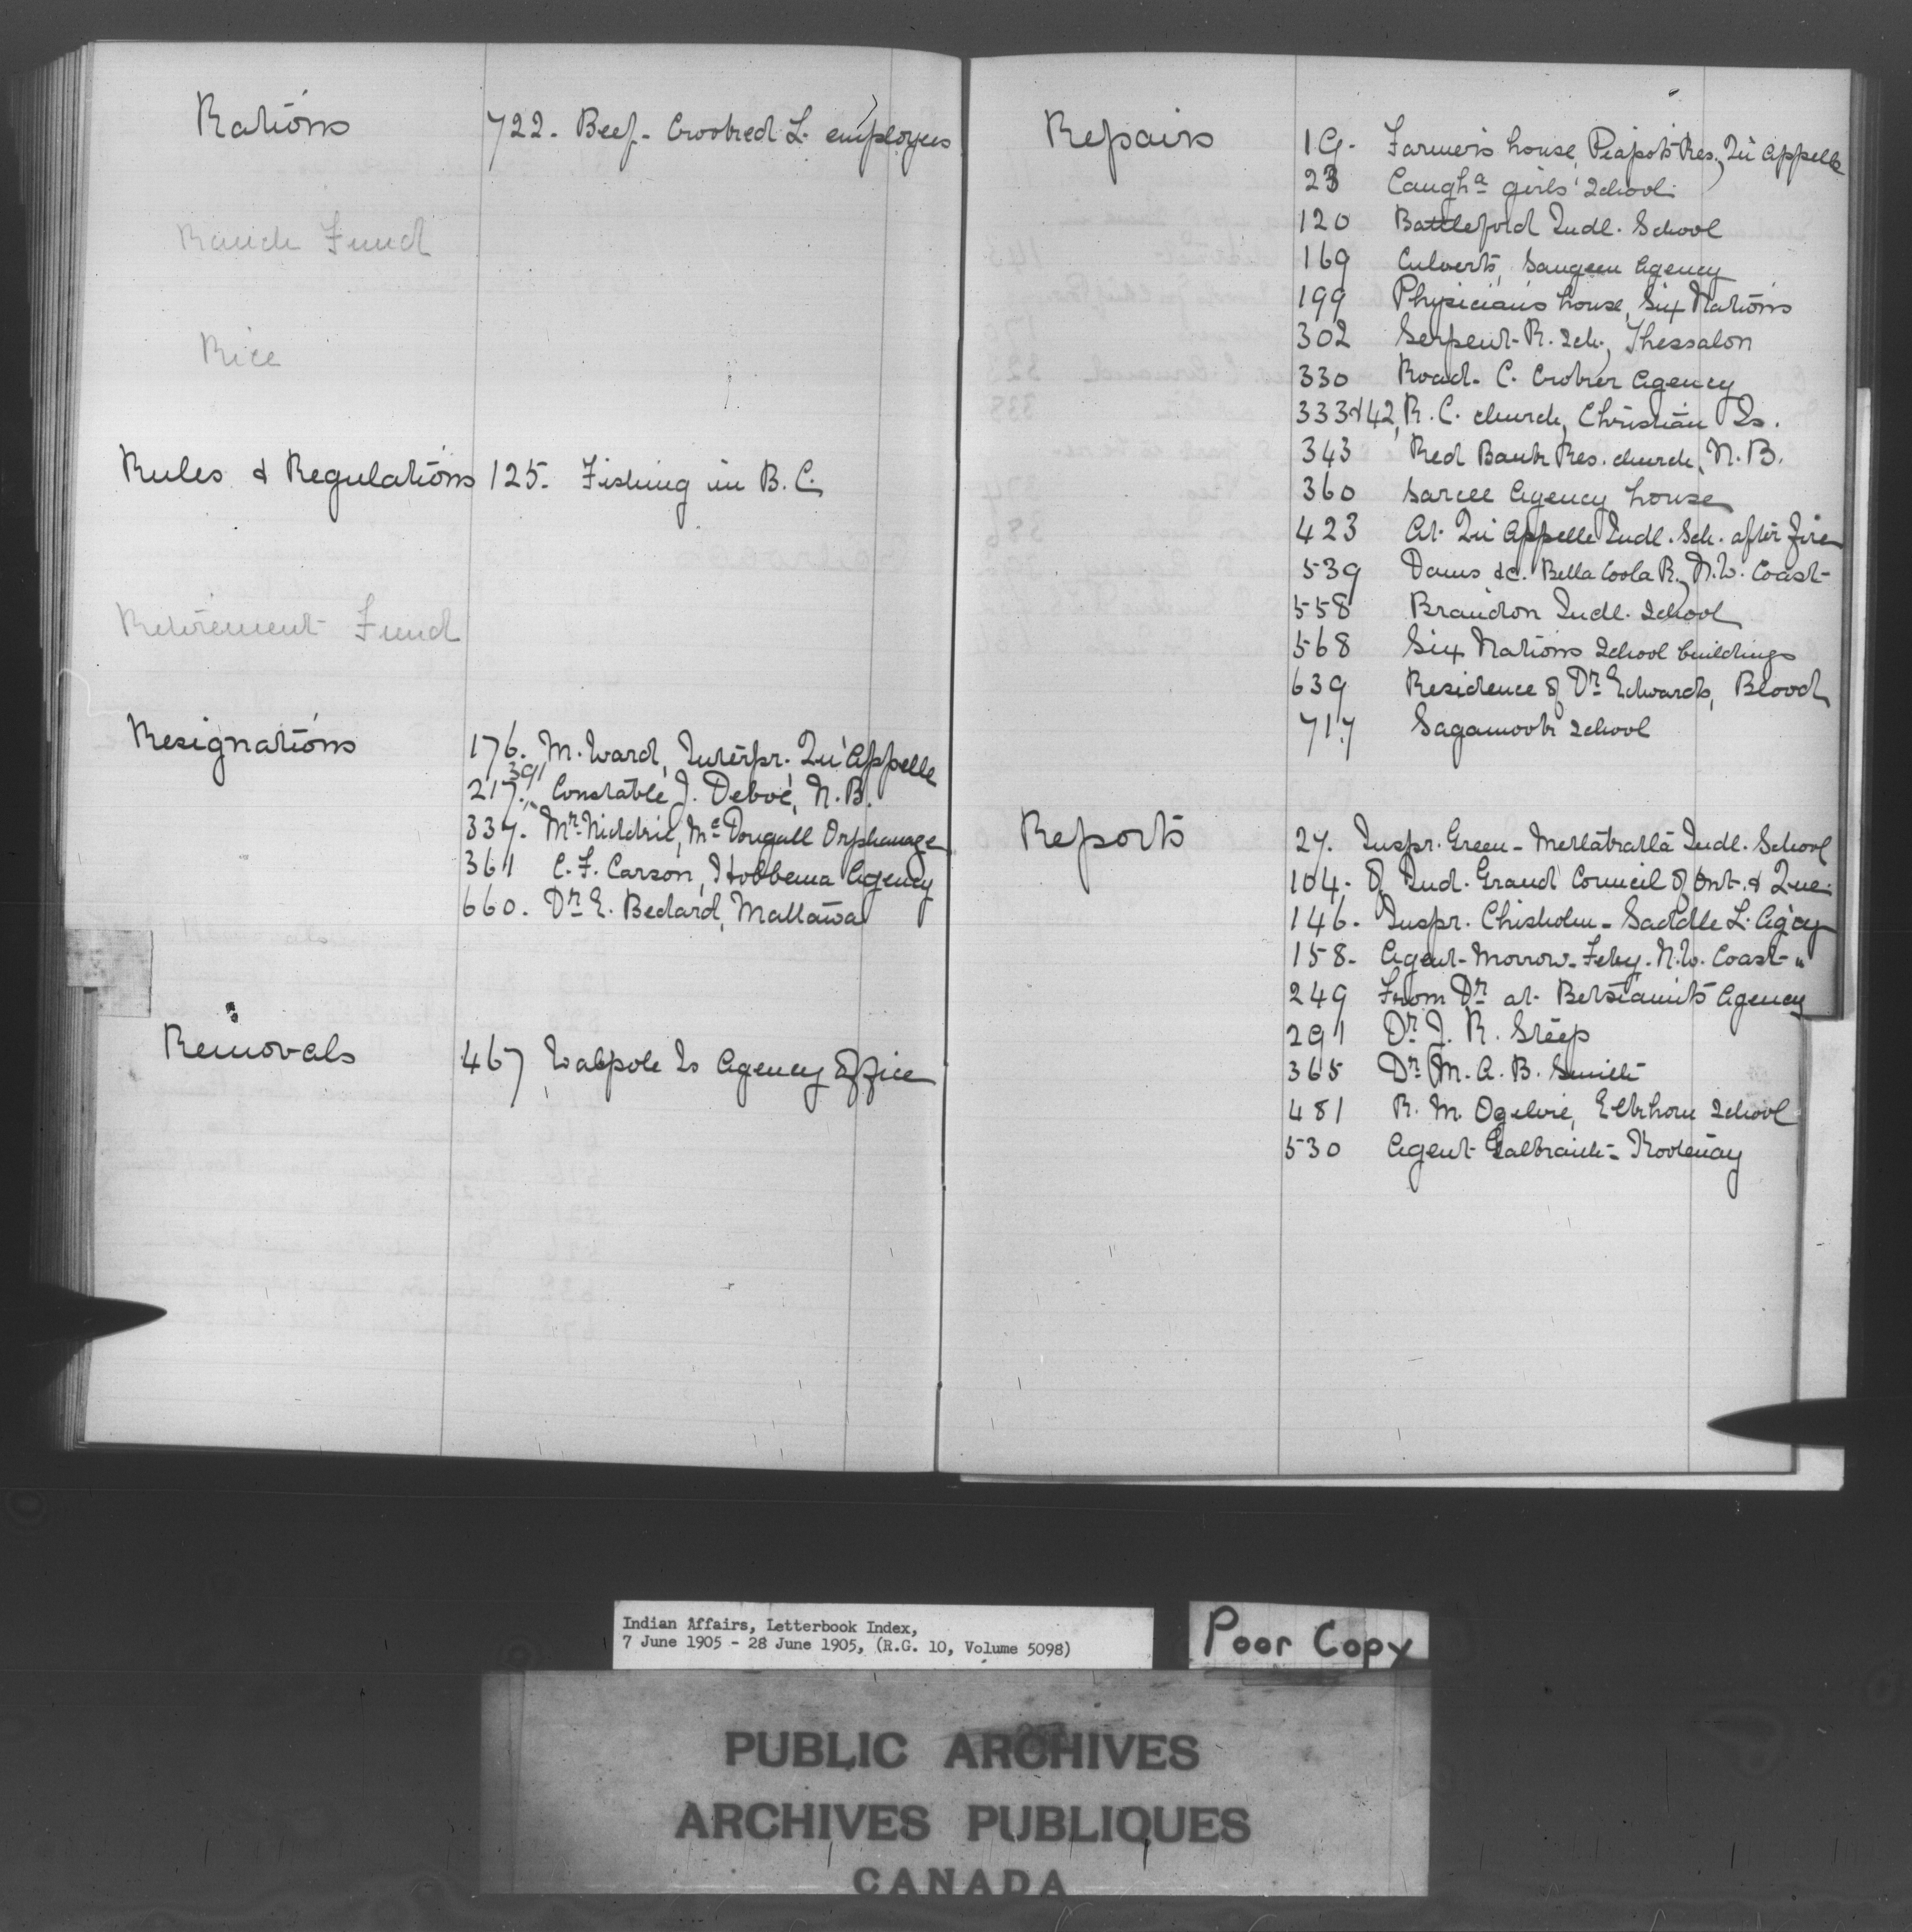 Rations 722. Beef - Crooked L. employees
Ranch Fund
Rice
Rules & Regulations 125. Fishing in B.C.
Retirement Fund
Resignations 176. M. Ward, Interpr. Qu'Appelle
391
217. Constable J. Deboe, N.B.
337. Mr. Niddrie, McDougall Orphanage
361 C. F. Carson, Hobbema Agency
660. Dr. E. Bedard, Mattawa
Removals 467 Walpole Is Agency Office
Repairs 19. Farmer's house, Piapot's Res., Qu'Appelle
23 Caugha girls' School
120 Battleford Indl. School
169 Culverts, Saugeen Agency
199 Physician's house, Six Nations
302 Serpent R. Sch., Thessalon
330 Road - C. Croker Agency
333 & 42, R. C. church, Christian Is.
343 Red Bank Res. church, N.B.
360 Sarcee Agency house
423 At Qu'Appelle Indl. Sch. after fire
539 Dams &c. Bella Coola R., N.W. Coast
558 Brandon Indl. School
568 Six Nations School buildings
639 Residence of Dr. Edwards, Blood
717 Sagamook School
Reports 27. Inspr. Green - Metlakatla Indl. School
104. Of Ind. Grand Council of Ont. & Que.
146. Inspr. Chisholm - Saddle L. Agcy
158. Agent Morrow - Feby. N.W. Coast "
249 From Dr. at Betsiamits Agency
291 Dr. J. R. Steep
365 Dr. M. A. B. Smith
481 R. M. Ogilvie, Elkhorn School
530 Agent Galbraith - Kootenay
Indian Affairs, Letterbook Index,
7 June 1905 - 28 June 1905, (R.G. 10, Volume 5098)
Poor Copy
PUBLIC ARCHIVES
ARCHIVES PUBLIQUES
CANADA